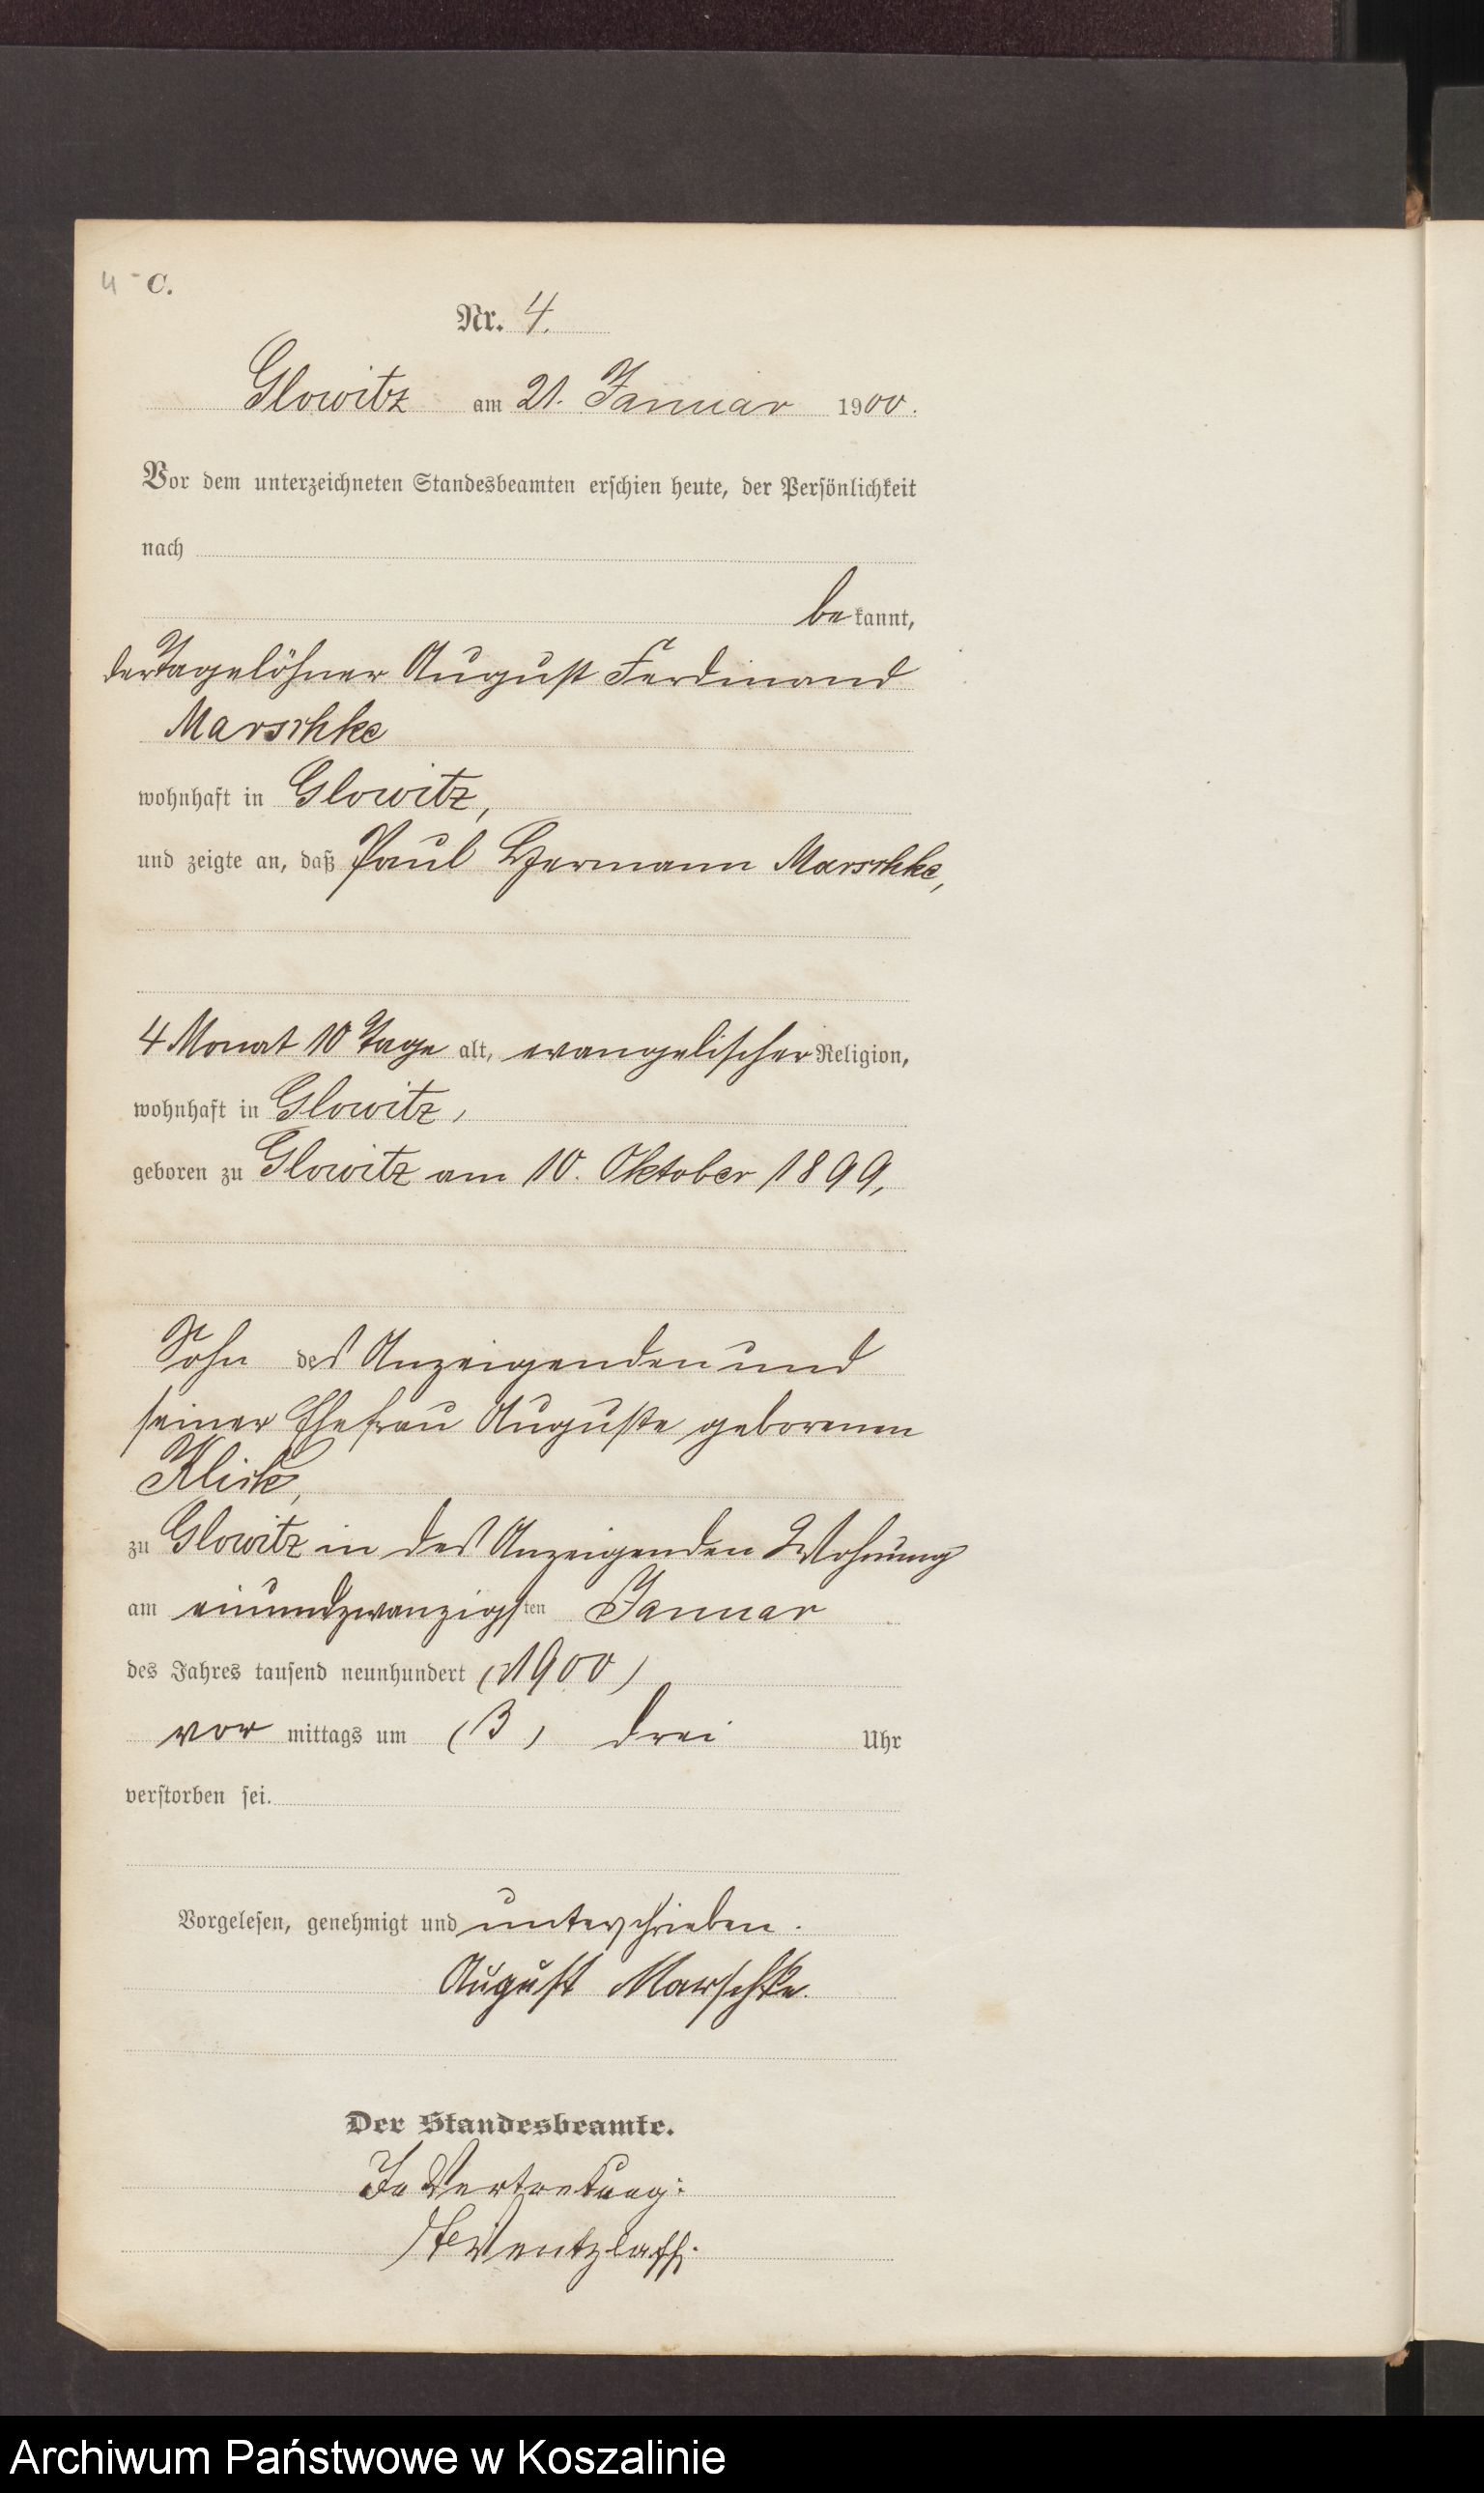 4 - C.
Nr. 4.
Glowitz am 21. Januar 1900.
Vor dem unterzeichneten Standesbeamten erschien heute, der Persönlichkeit
nach
bekannt,
der Tagelöhner August Ferdinand
Marschke
wohnhaft in Glowitz,
und zeigte an, daß Paul Hermann Marschke,
4 Monat 10 Tage alt, evangelischer Religion,
wohnhaft in Glowitz,
geboren zu Glowitz am 10. Oktober 1899,
Sohn des Anzeigenden und
seiner Ehefrau Auguste geborenen
Klick,
zu Glowitz in des Anzeigenden Wohnung
am einundzwanzigsten Januar
des Jahres tausend neunhundert (1900)
vor mittags um (3) drei Uhr
verstorben sei.
Vorgelesen, genehmigt und unterschrieben.
August Marschke.
Der Standesbeamte.
In Vertretung:
Wentzlaff.
Archiwum Państwowe w Koszalinie